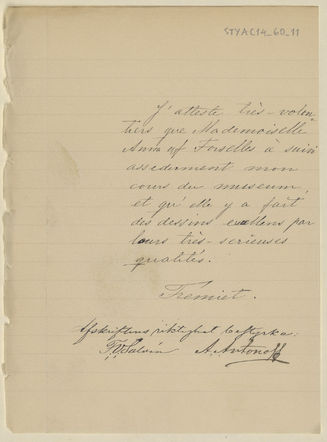 STYAC14_60_11
J'atteste très-volon-
tiers que Mademoiselle
Anna af Forselles à suivi
assedument mon
cours du museum,
et qu'elle y a fait
des dessins exellens par
leurs très-serieuses
qualités.
Fremiet.
Afskriftens riktighet bestyrka:
A. Antonoff